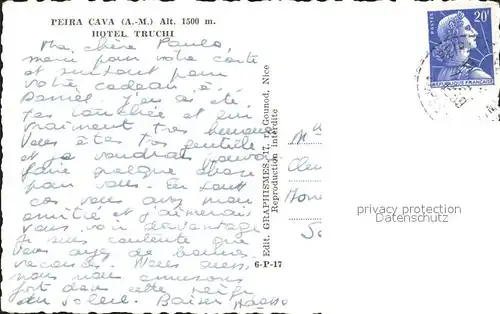 PEIRA CAVA (A.-M.) Alt. 1500 m.
HOTEL TRUCHI
Ma chère Paule,
merci pour votre carte
et surtout pour
votre cadeau à
Daniel j'en ai été
très touchée et suis
vraiment très heureuse
Vous êtes très gentille
et je voudrais pouvoir
faire quelque chose
pour vous. En tout
cas vous avez mon
amitié et j'aimerais
vous voir davantage
Je suis contente que
vous ayez de bonnes
vacances. Nous aussi
nous nous amusons
fort dans cette neige
du soleil. Baiser
Edit. GRAPHISMES, 17, r. Gounod, Nice
Reproduction interdite
6-P-17
20F
POSTES
REPUBLIQUE FRANÇAISE
privacy protection
Datenschutz